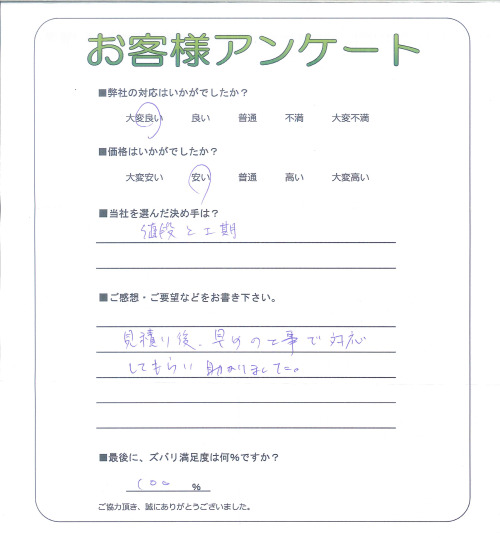 お客様アンケート
■弊社の対応はいかがでしたか？
大変良い 良い 普通 不満 大変不満
■価格はいかがでしたか？
大変安い 安い 普通 高い 大変高い
■当社を選んだ決め手は？
値段と工期
■ご感想・ご要望などをお書き下さい。
見積り後、早めの工事で対応
してもらい助かりました。
■最後に、ズバリ満足度は何％ですか？
100 ％
ご協力頂き、誠にありがとうございました。